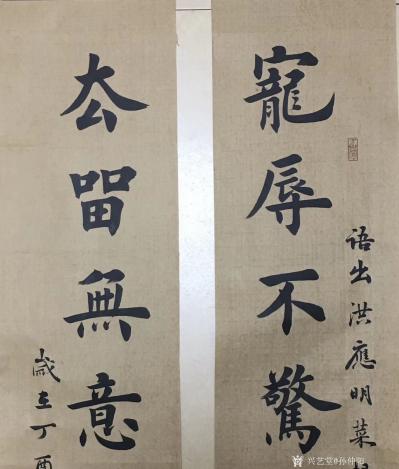 寵辱不驚
语出洪應明菜
去留無意
歲在丁酉
兴艺堂@孙仲阳